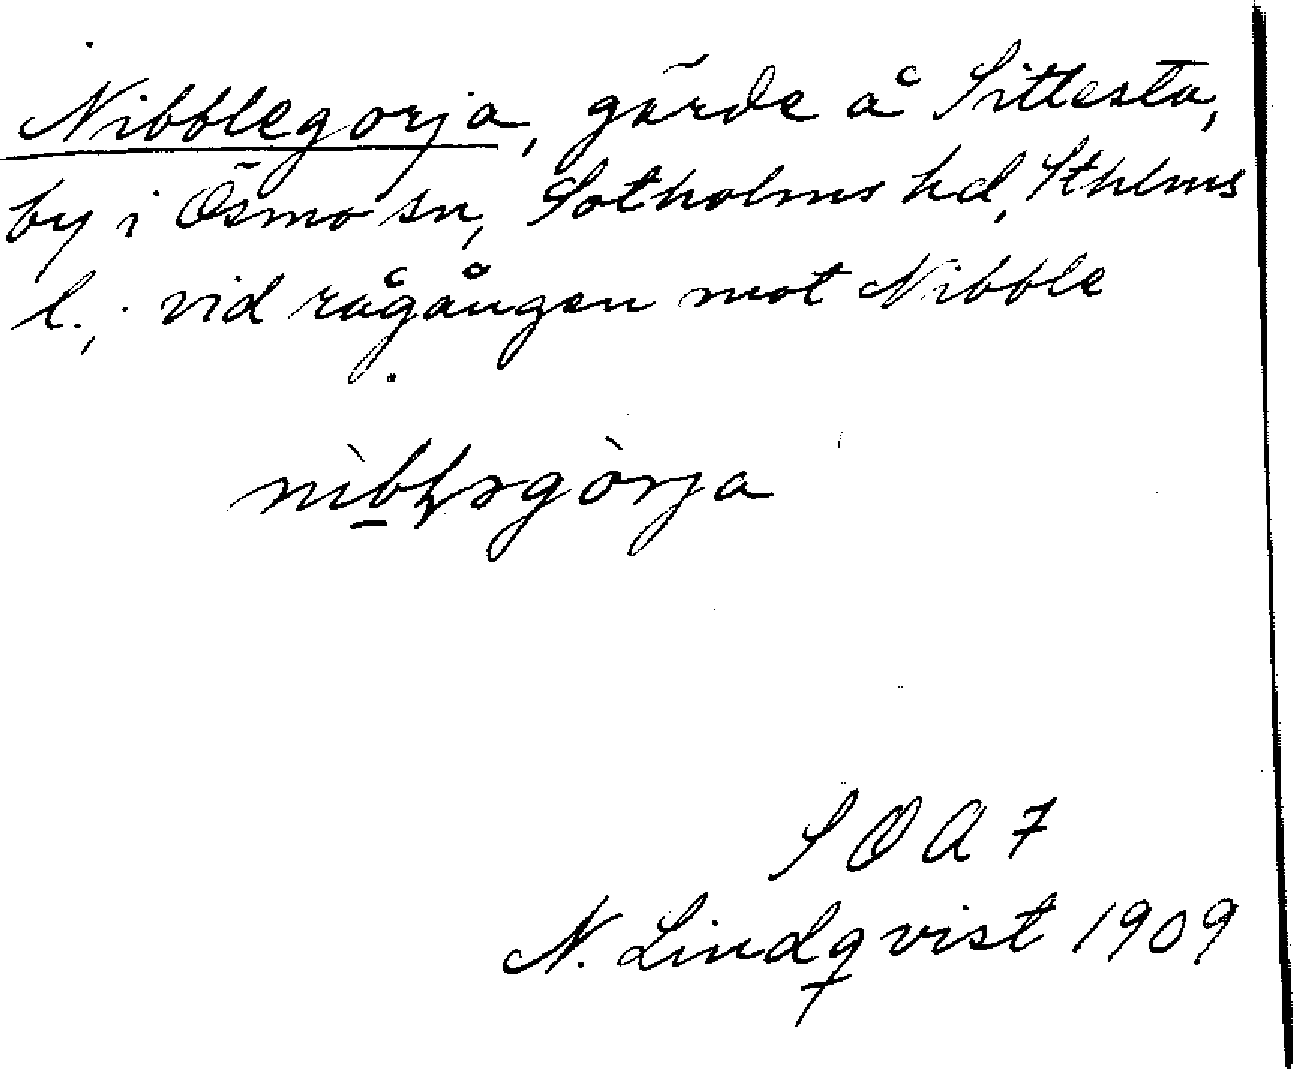 Nibblegorja, gärde å Sittesta,
by i Ösmo sn, Sotholms hd, Sthlms
l.; vid rågången mot Nibble
S O A 7
N. Lindqvist 1909